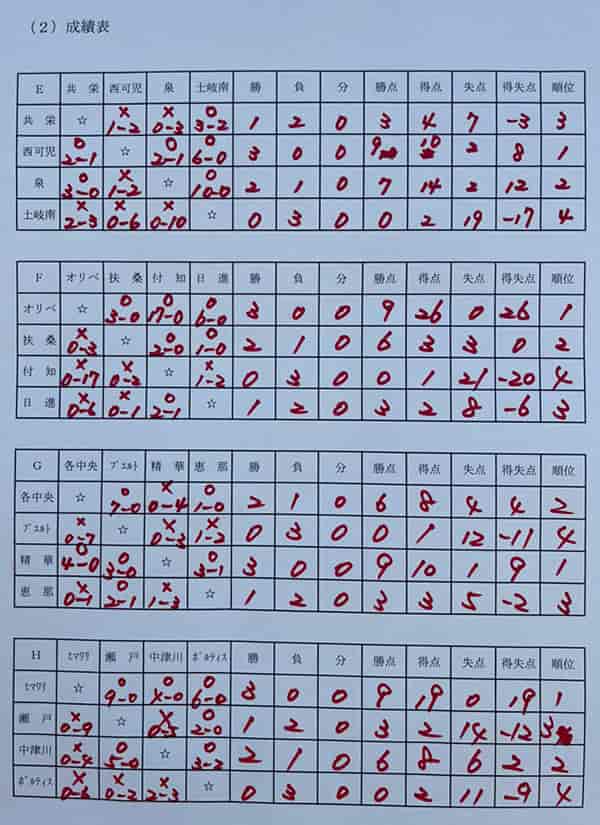 （２）成績表
E 共栄 西可児 泉 土岐南 勝 負 分 勝点 得点 失点 得失点 順位
共栄 ☆ ×1-2 ×0-3 ○3-2 1 2 0 3 4 7 -3 3
西可児 ○2-1 ☆ ○2-1 ○6-0 3 0 0 9 10 2 8 1
泉 ○3-0 ×1-2 ☆ ○10-0 2 1 0 7 14 2 12 2
土岐南 ×2-3 ×0-6 ×0-10 ☆ 0 3 0 0 2 19 -17 4
F オリベ 扶桑 付知 日進 勝 負 分 勝点 得点 失点 得失点 順位
オリベ ☆ ○3-0 ○17-0 ○6-0 3 0 0 9 26 0 26 1
扶桑 ×0-3 ☆ ○2-0 ○1-0 2 1 0 6 3 3 0 2
付知 ×0-17 ×0-2 ☆ ×1-2 0 3 0 0 1 21 -20 4
日進 ×0-6 ×0-1 ○2-1 ☆ 1 2 0 3 2 8 -6 3
G 各中央 ﾌﾟｴﾙﾄ 精華 恵那 勝 負 分 勝点 得点 失点 得失点 順位
各中央 ☆ ○7-0 ×0-4 ○1-0 2 1 0 6 8 4 4 2
ﾌﾟｴﾙﾄ ×0-7 ☆ ×0-3 ×1-2 0 3 0 0 1 12 -11 4
精華 ○4-0 ○3-0 ☆ ○3-1 3 0 0 9 10 1 9 1
恵那 ×0-1 ○2-1 ×1-3 ☆ 1 2 0 3 3 5 -2 3
H ﾋﾏﾜﾘ 瀬戸 中津川 ﾎﾞﾙﾃｨｽ 勝 負 分 勝点 得点 失点 得失点 順位
ﾋﾏﾜﾘ ☆ ○9-0 ○4-0 ○6-0 3 0 0 9 19 0 19 1
瀬戸 ×0-9 ☆ ×0-5 ○2-0 1 2 0 3 2 14 -12 3
中津川 ×0-4 ○5-0 ☆ ○3-2 2 1 0 6 8 6 2 2
ﾎﾞﾙﾃｨｽ ×0-6 ×0-2 ×2-3 ☆ 0 3 0 0 2 11 -9 4